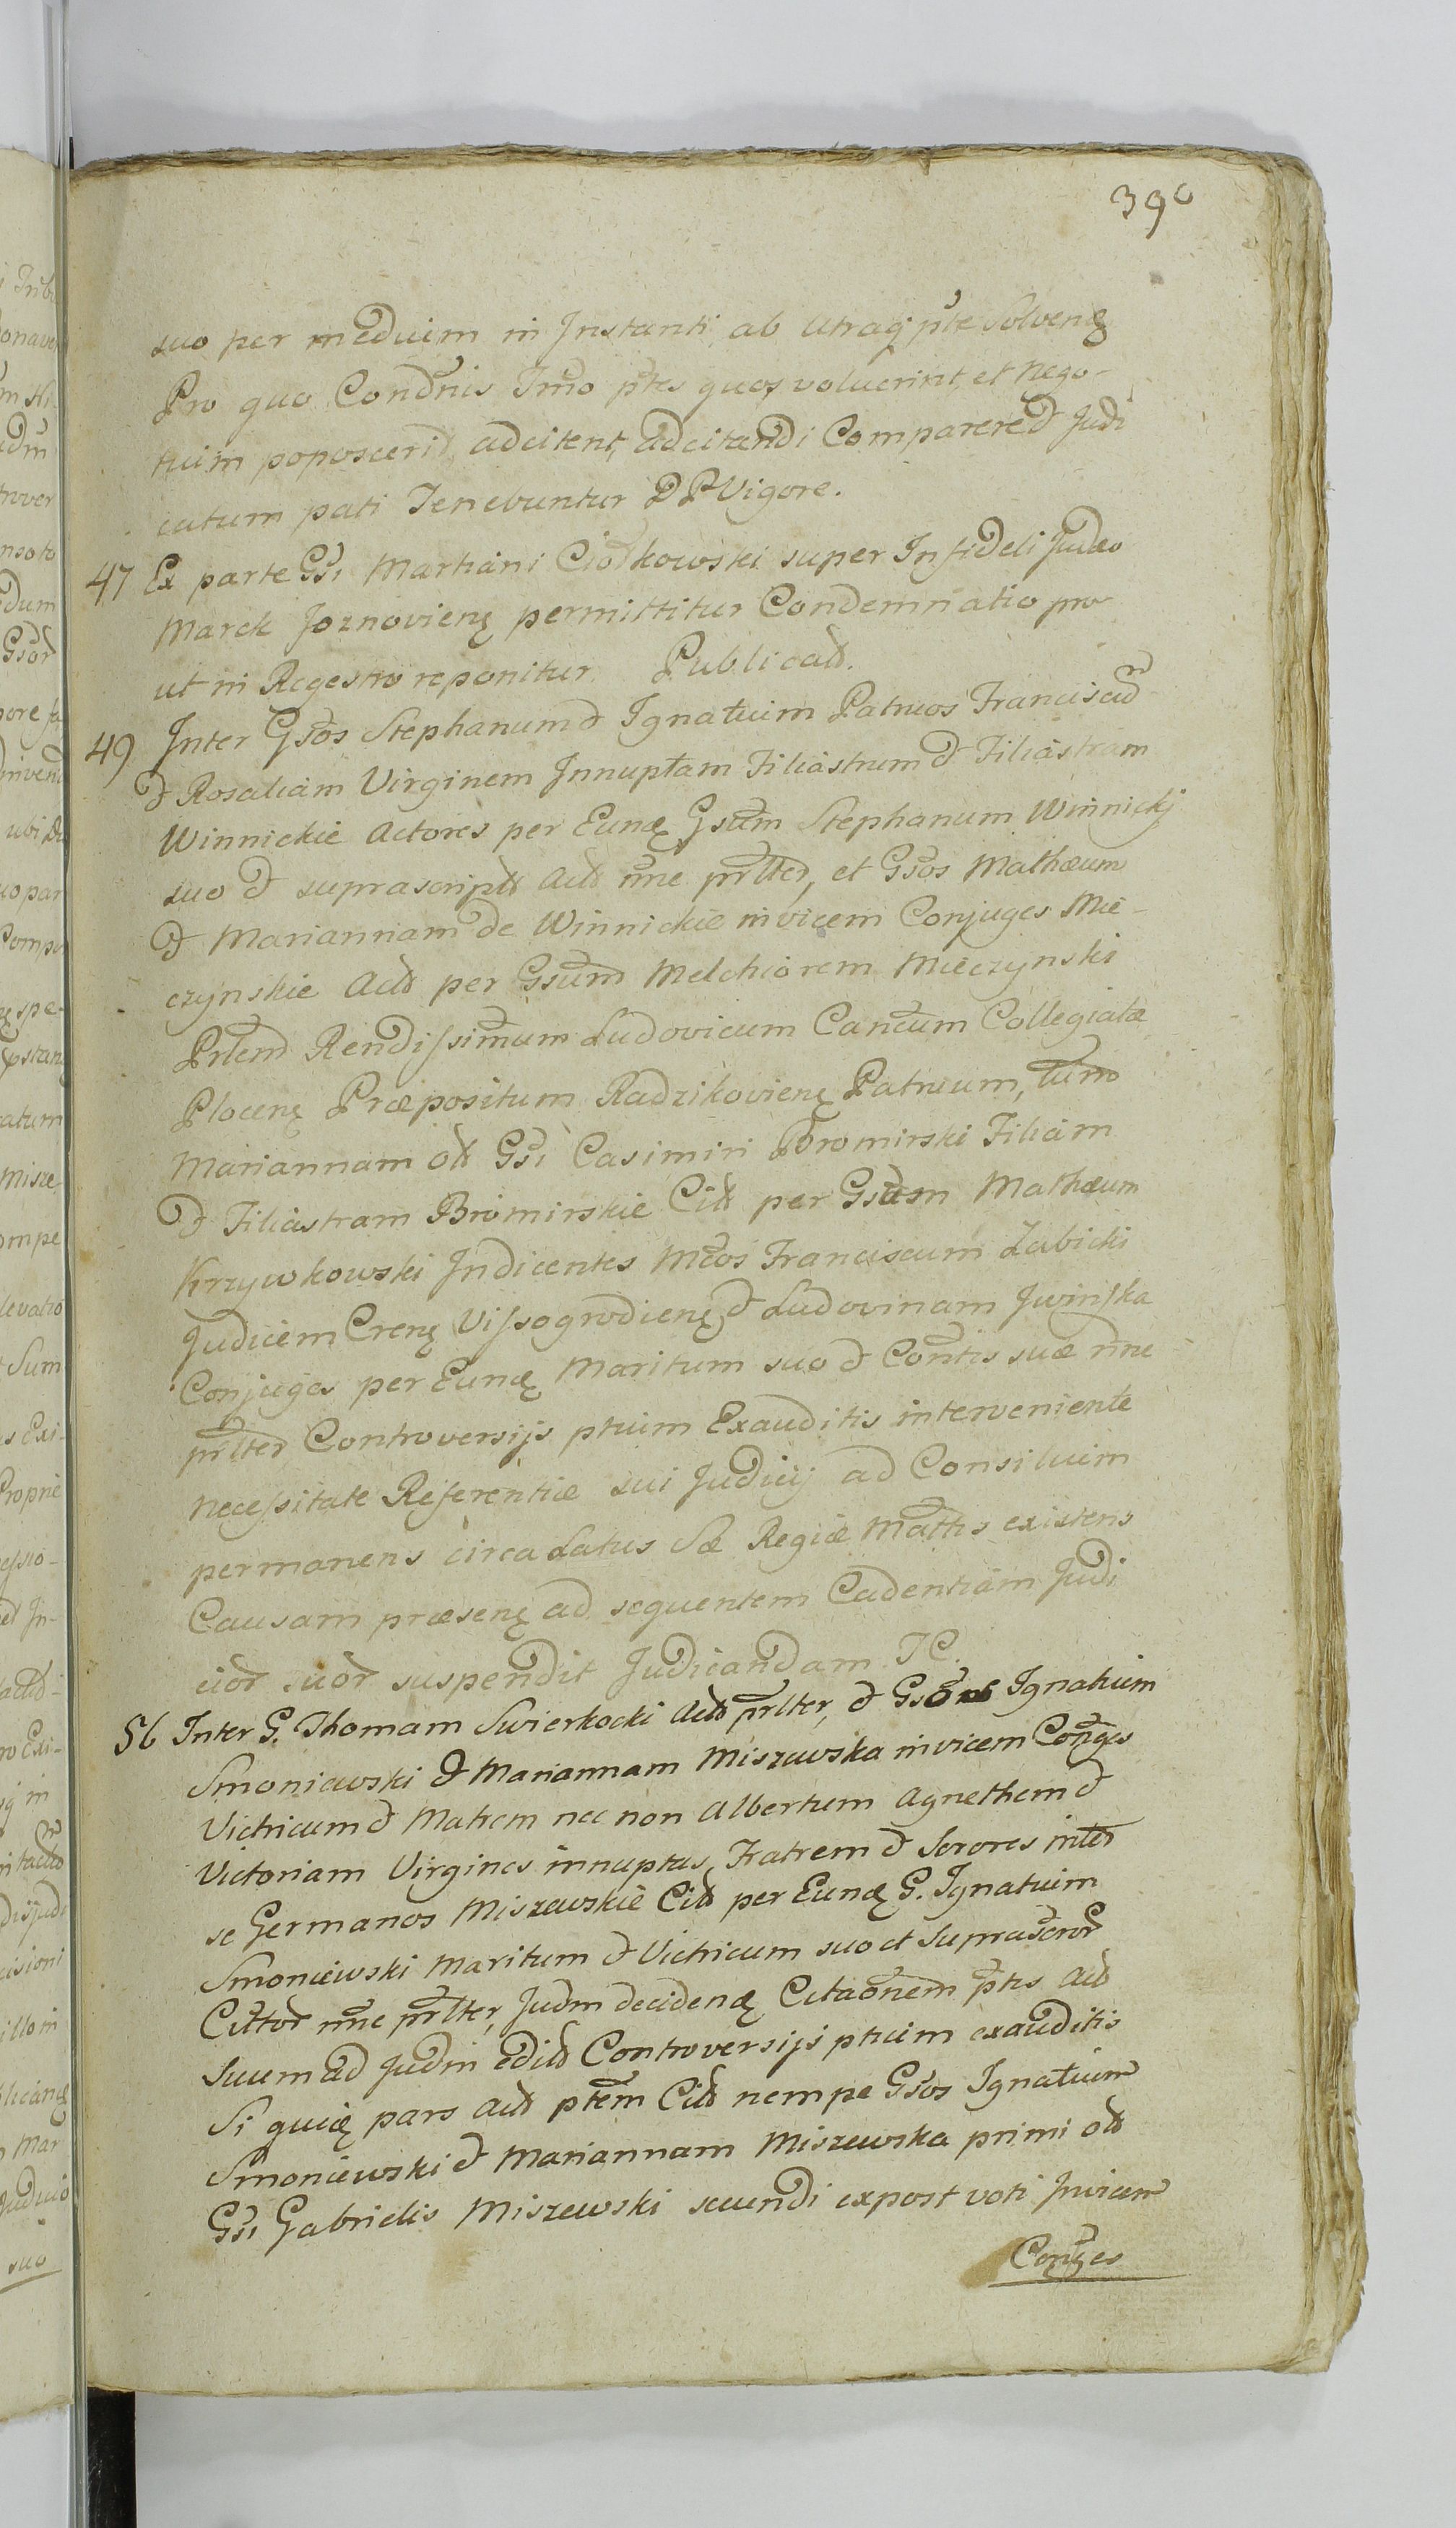 390
suo per medium in Instanti ab utraq̃ pte solvenę
Pro quo Condnis Imo ptes quos voluerint et nego-
tium poposcerit adcitent, adcitandi Comparere & Judi
catum pati Tenebuntur DP Vigore.
47 Ex parte Gsi Martiani Ciołkowski super Infideli Judæo
Marek Joznovienę permittitur Condemnatio pro
ut in Regestro reponitur Publicatt.
49 Inter Gsos Stephanum & Ignatium Patruos Franciscum
& Rosaliam Virginem Innuptam Filiastrum & Filiastram
Winnickie Actores per Eund Gsum Stephanum Winnickj
suo & suprascriptt Actt nne prltter, et Gsos Mathæum
& Mariannam de Winnickie invicem Conjuges Mie-
czynskie Actt per Gsum Melchiorem Mieczynski
Prlem Rendissimum Ludovicum Cancum Collegiatæ
Plocenę Præpositum Radzikovienę Patruum, tum
Mariannam ott Gsi Casimiri Bromirski Filiam
& Filiastram Bromirskie Citt per Gsum Mathæum
Krzywkowski Indicentes Mcos Franciscum Zabicki
Judicem Crenę Vissogrodienę & Ludovinam Jwinska
Conjuges per Eund Maritum suo & Contis suæ nne
prltter Controversijs ptium Exauditis interveniente
necessitate Referentiæ sui Judicij ad Consilium
permanens circa Latus Sæ Regiæ Mattis existens
Causam præsenę ad sequentem Cadentiam Judi
cior suor suspendit Judicandam JC.
56 Inter G. Thomam Swierkocki Actt prlter, & Gsos Ignatium
Smoniewski & Mariannam Miszewska invicem Conges
Victricum & Matrem nec non Albertum Agnethem &
Victoriam Virgines innuptas, Fratrem & Sorores inter
se Germanos Miszewskie Citt per Eund G. Ignatium
Smoniewski Maritum & Victricum suo et Suprascror
Cittor nne prlter, Judm decidend Citaonem ptis Actt
Suum ad Judm editt Controversijs ptium exauditis
Si quid pars Actt ptem Citt nempe Gsos Ignatium
Smoniewski & Mariannam Miszewska primi ott
Gsi Gabrielis Miszewski secundi expost voti Invicem
Conges